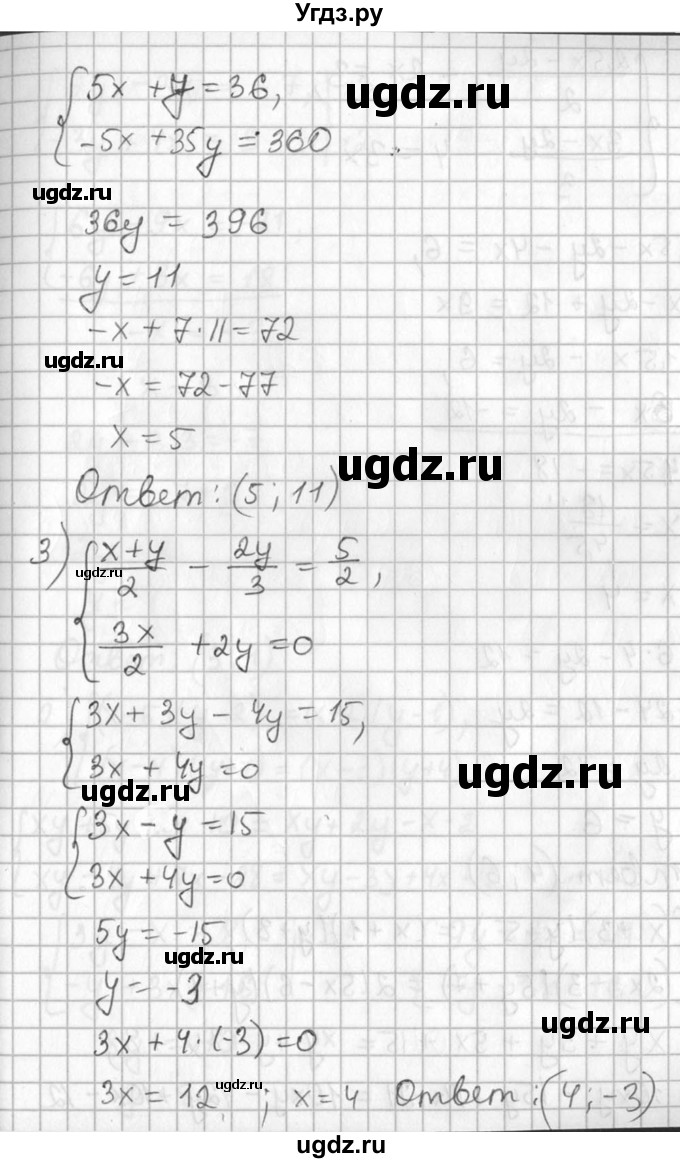 Угдз.ру
{ 5x + y = 36,
-5x + 35y = 360
ugdz.ru
ugdz.ru
36y = 396
y = 11
-x + 7·11 = 72
ugdz.ru
-x = 72 - 77
x = 5
ugdz.ru
Ответ: (5; 11)
3) { (x+y)/2 - 2y/3 = 5/2,
ugdz.ru
3x/2 + 2y = 0
{ 3x + 3y - 4y = 15,
3x + 4y = 0
ugdz.ru
ugdz.ru
{ 3x - y = 15
3x + 4y = 0
5y = -15
ugdz.ru
y = -3
ugdz.ru
3x + 4·(-3) = 0
ugdz.ru
3x = 12 ; x = 4 Ответ: (4; -3)
ugdz.ru